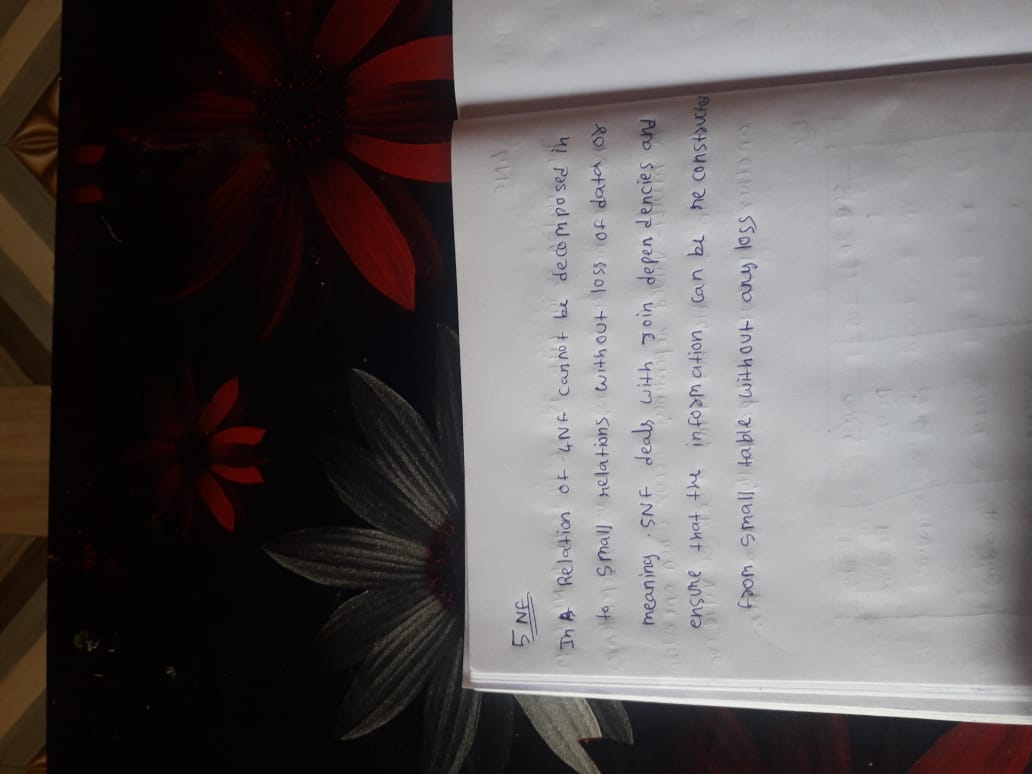 5 NF
In A Relation of 4NF cannot be decomposed in
to small relations without loss of data or
meaning. 5NF deals with Join dependencies and
ensure that the information can be reconstructed
from small table without any loss